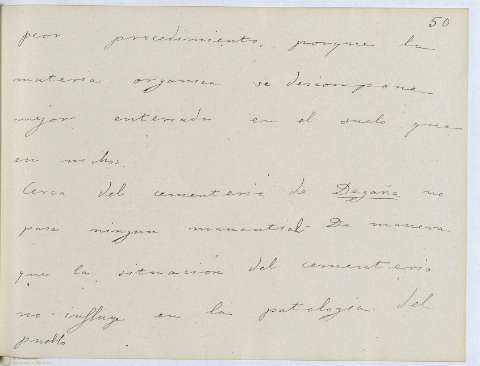 50
peor procedimiento, porque la
materia organica se descompone
mejor enterrada en el suelo que
en nichos.
Cerca del cementerio de Degaña no
pasa ningun manantial. De manera
que la situación del cementerio
no influye en la patologia del
pueblo